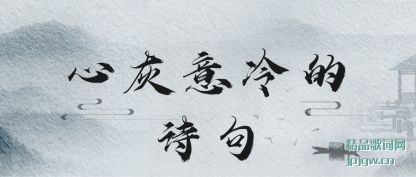 心灰意冷的
诗句
精品歌词网
jpjgw.cn